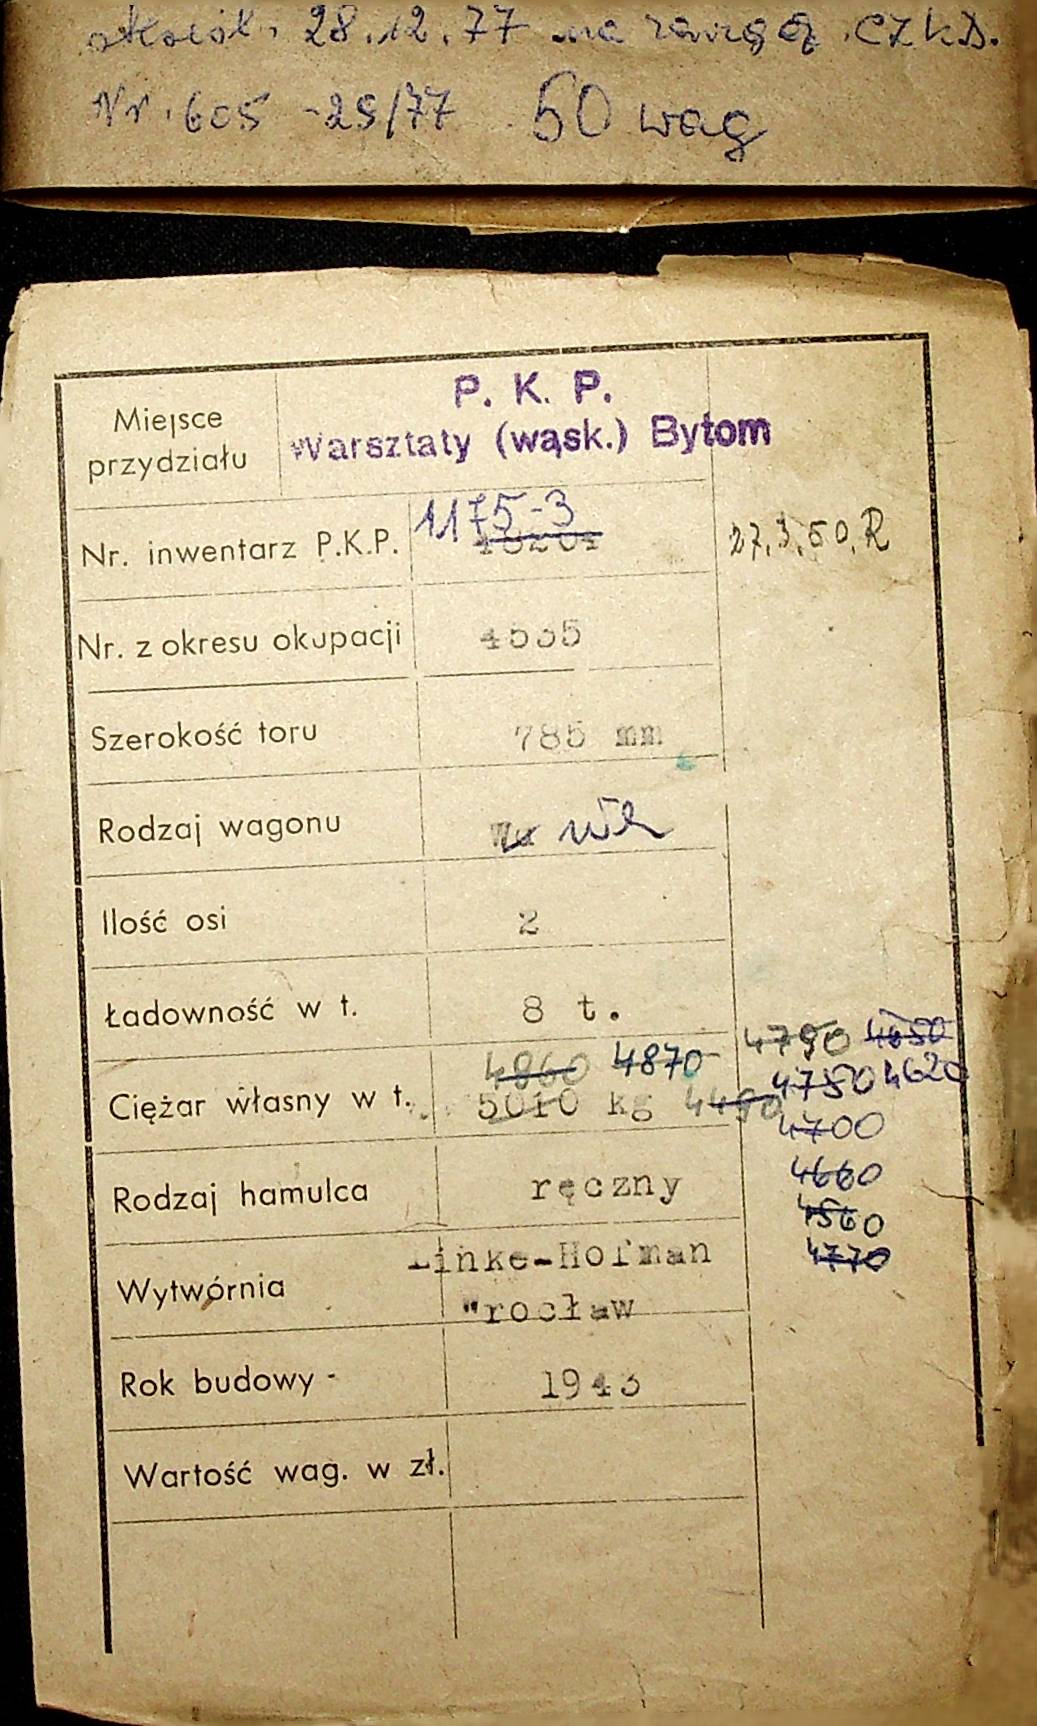 28.12.77 na
Nr. 605 -25/77 50 wag
P. K. P.
Miejsce przydziału
Warsztaty (wąsk.) Bytom
1175-3
Nr. inwentarz P.K.P. 27.3.50.R
Nr. z okresu okupacji 4535
Szerokość toru 785 mm
Rodzaj wagonu
Ilość osi 2
Ładowność w t. 8 t.
4790 4650
4860 4870 4750 4620
Ciężar własny w t. 5010 kg 4490
4700
4660
Rodzaj hamulca ręczny
4560
4770
Linke-Hofman
Wytwórnia Wrocław
Rok budowy - 1943
Wartość wag. w zł.